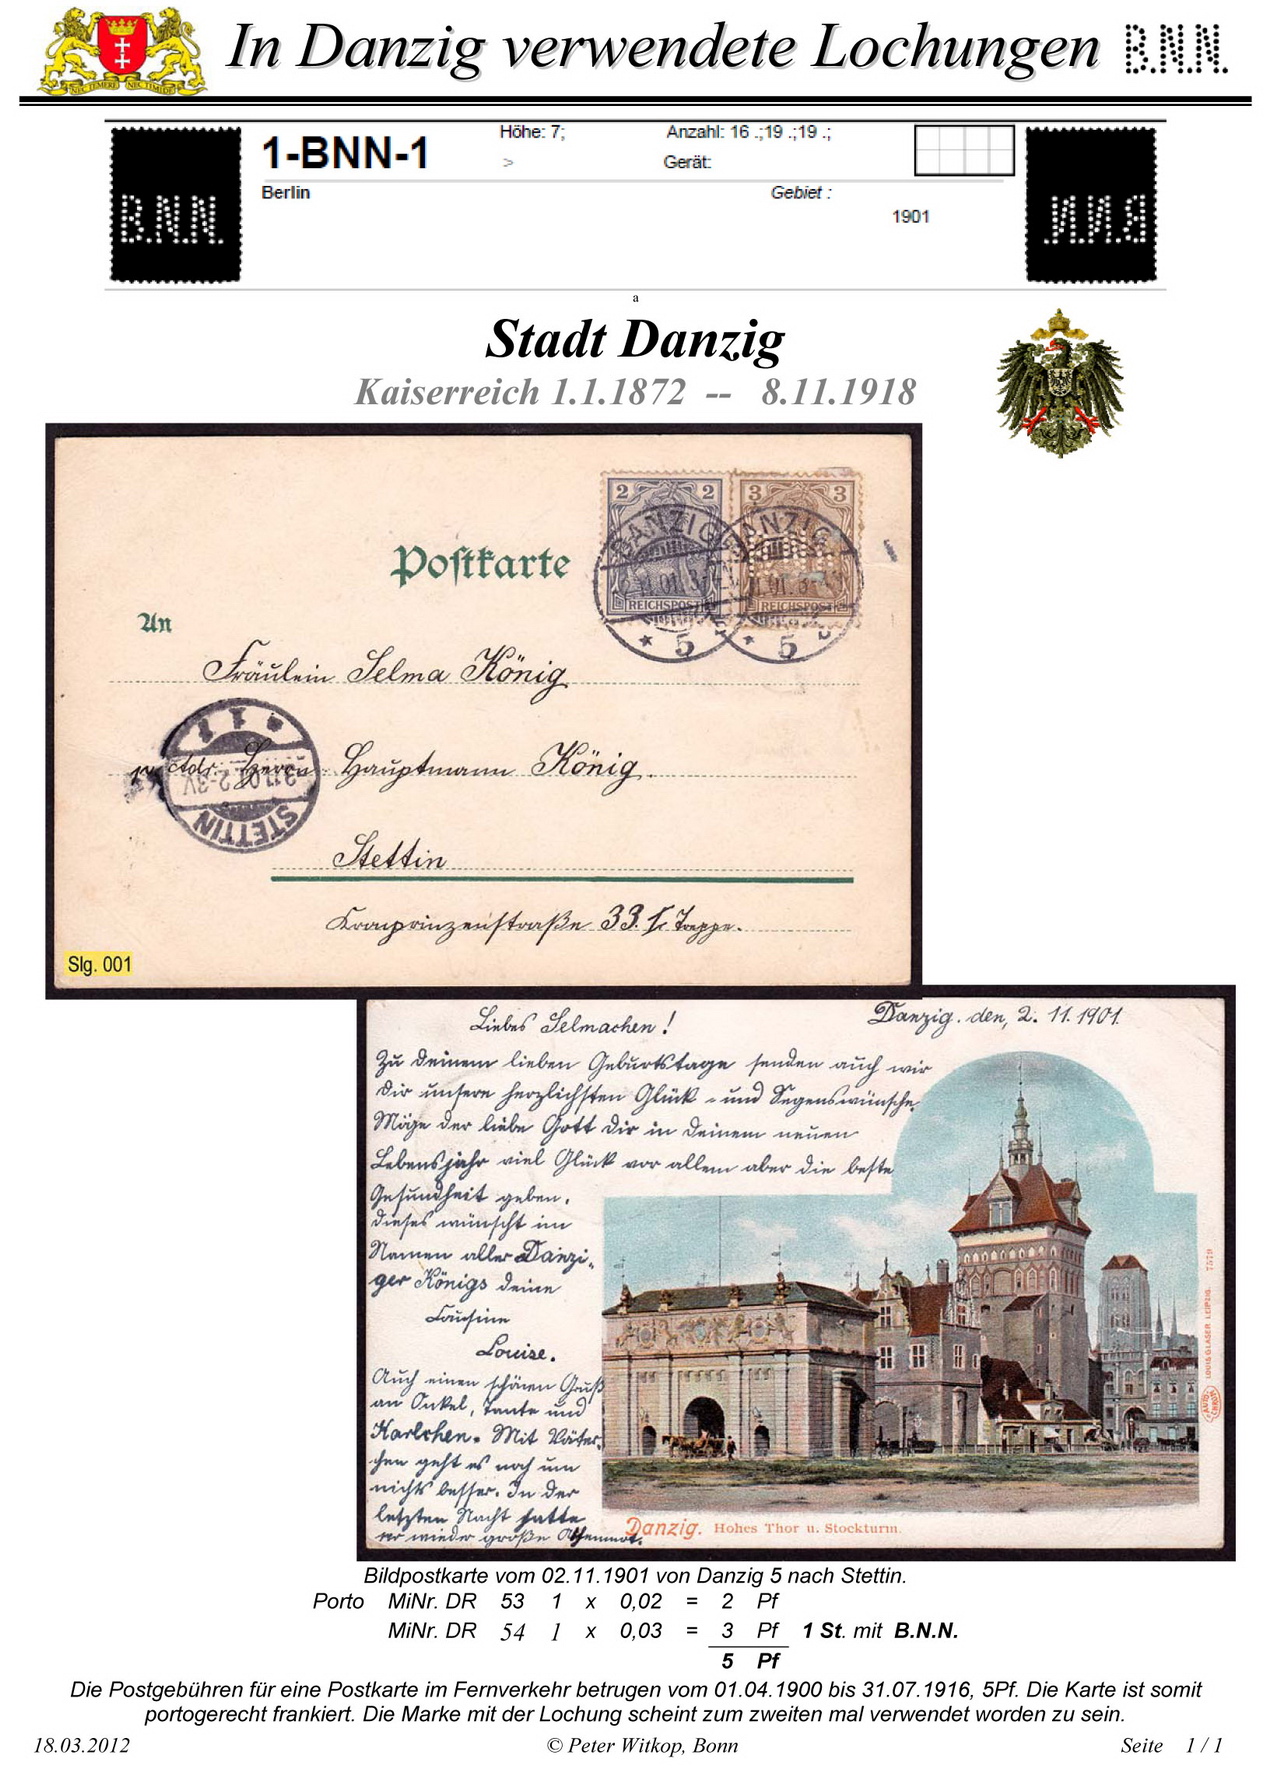 In Danzig verwendete Lochungen B.N.N.
NEC TEMERE NEC TIMIDE
B.N.N.
1-BNN-1
Höhe: 7;
Anzahl: 16 .;19 .;19 .;
>
Gerät:
Berlin
Gebiet :
1901
B.N.N.
a
Stadt Danzig
Kaiserreich 1.1.1872 -- 8.11.1918
2 2 3 3
DANZIG DANZIG
REICHSPOST REICHSPOST
* 5 * 5
Postkarte
An
Fräulein Selma König
pr. Adr. Herrn Hauptmann König.
STETTIN
* 1 1
Stettin
Kronprinzenstraße 33. I. Treppe.
Slg. 001
Liebes Selmachen!
Danzig. den, 2. 11. 1901.
Zu Deinem lieben Geburtstage senden auch wir
Dir unsere herzlichsten Glück - und Segenswünsche.
Möge der liebe Gott Dir in Deinem neuen
Lebensjahr viel Glück vor allem aber die beste
Gesundheit geben.
dieses wünscht im
Namen aller Danzi-
ger Königs deine
Cousine
Louise.
Auch einen schönen Gruß
an Onkel, Tante und
Karlchen. Mit Väter-
chen geht es noch um
nichts besser. In der
letzten Nacht hatte
er wieder große Athemnot.
Danzig. Hohes Thor u. Stockturm.
LOUIS GLASER LEIPZIG. 7579
Bildpostkarte vom 02.11.1901 von Danzig 5 nach Stettin.
Porto MiNr. DR 53 1 x 0,02 = 2 Pf
MiNr. DR 54 1 x 0,03 = 3 Pf 1 St. mit B.N.N.
5 Pf
Die Postgebühren für eine Postkarte im Fernverkehr betrugen vom 01.04.1900 bis 31.07.1916, 5Pf. Die Karte ist somit
portogerecht frankiert. Die Marke mit der Lochung scheint zum zweiten mal verwendet worden zu sein.
18.03.2012
© Peter Witkop, Bonn
Seite 1 / 1